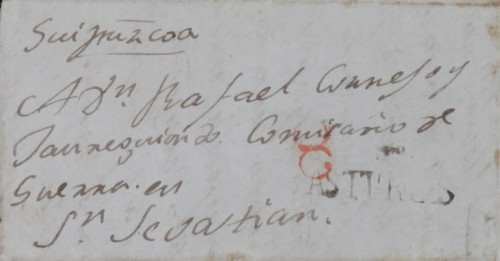 Guipuzcoa
A Dn. Rafael Cornejo y
Jaureguiondo Comisario de
Guerra en
Sn. Sevastian.
ASTURIAS